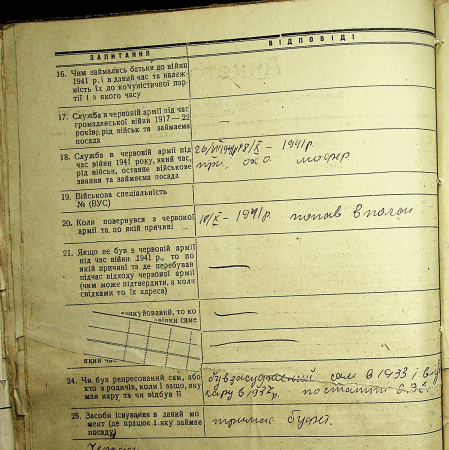 ЗАПИТАННЯ
ВІДПОВІДІ
16. Чим займались батьки до війни
1941 р. і в даний час та належ-
ність їх до комуністичної пар-
тії і з якого часу
17. Служба в червоній армії під час
громадянської війни 1917 — 22
років, рід військ та займаєма
посада
18. Служба в червоній армії під
час війни 1941 року, який час,
рід військ, останнє військове
звання та займаєма посада
18/X – 1941р.
19. Військова спеціальність
№ (ВУС)
20. Коли повернувся з червоної
армії та по якій причині
18/X – 1941р. попав в полон
21. Якщо не був в червоній армії
під час війни 1941 р., то по
якій причині та де перебував
підчас відходу червоної армії
(чим може підтвердити, а коли
свідками то їх адреса)
евакуйований, то ко
саме
який час
24. Чи був репресований сам, або
хто з родичів, коли і якщо, яку
мав кару та чи відбув її
був засуджений сам в 1933 і
кару в 1937р. по статті
25. Засоби існування в даний мо-
мент (де працює і яку займає
посаду)
тримає буфет.